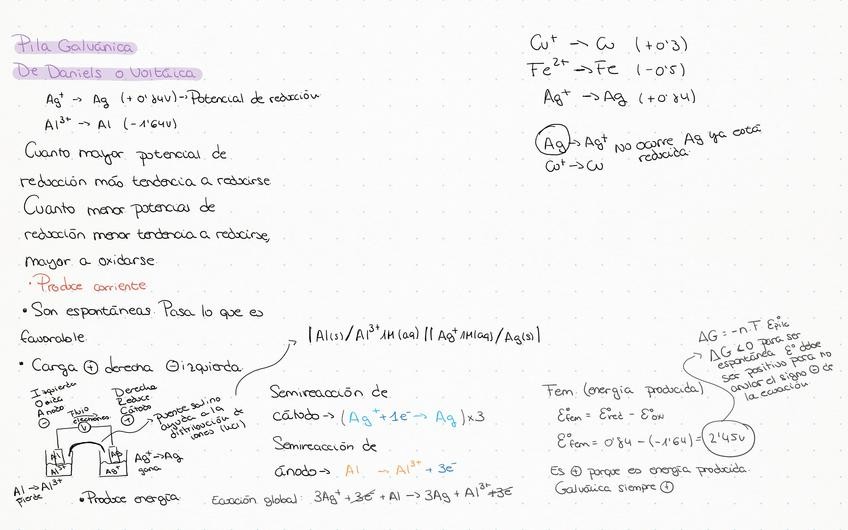 Pila Galvánica
De Daniels o Voltáica
Ag⁺ → Ag (+0'84V) → Potencial de reducción
Al³⁺ → Al (-1'64V)
Cuanto mayor potencial de
reducción más tendencia a reducirse
Cuanto menor potencias de
reducción menor tendencia a reducirse,
mayor a oxidarse.
· Produce corriente
• Son espontáneas. Pasa lo que es
favorable.
• Carga ⊕ derecha ⊖ izquierda
Izquierda
Oxida
Ánodo
⊖
Flujo
electrones
V
Derecha
Reduce
Cátodo
⊕
Puente salino
ayuda a la
distribución de
iones (KCl)
Al
Al³⁺
Ag
Ag⁺
Ag⁺→Ag
gana
Al → Al³⁺
pierde
• Produce energía.
| Al(s) / Al³⁺ 1M (aq) || Ag⁺ 1M (aq) / Ag(s) |
Semireacción de
cátodo → (Ag⁺ + 1e⁻ → Ag) x3
Semireacción de
ánodo → Al → Al³⁺ + 3e⁻
Ecuación global: 3Ag⁺ + 3e⁻ + Al → 3Ag + Al³⁺ + 3e⁻
Cu⁺ → Cu (+0'3)
Fe²⁺ → Fe (-0'5)
Ag⁺ → Ag (+0'84)
Ag → Ag⁺ No ocurre Ag ya está
reducida.
Cu⁺ → Cu
Fem. (energía producida)
ℰ°fem = ℰ°red - ℰ°ox
ℰ°fem = 0'84 - (-1'64) = 2'45V
Es ⊕ porque es energía producida.
Galvánica siempre ⊕
ΔG = -n·F·ℰpila
ΔG < 0 para ser
espontánea ℰ° debe
ser positivo para no
anular el signo ⊖ de
la ecuación